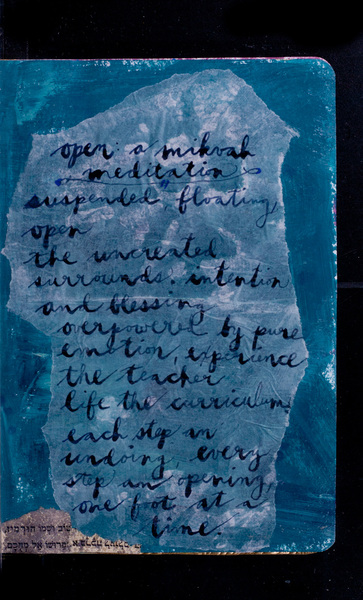 open: a mikvah
meditation
suspended, floating,
open
the uncreated
surrounds. intention
and blessing
overpowered by pure
emotion, experience
the teacher
life the curriculum.
each step an
undoing, every
step an opening,
one foot at a
time.